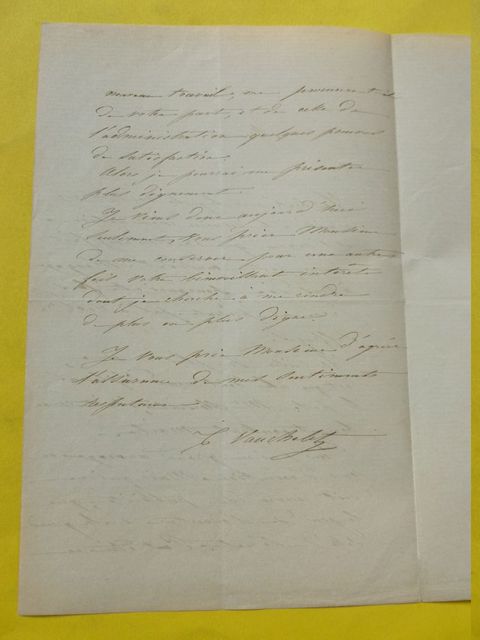 nouveau travail, me
de votre part, et de celle de
l'administration quelques preuves
de satisfaction.
Alors je pourrai me présenter
plus dignement.
Je viens donc aujourd'hui
seulement, vous prier Monsieur
de me conserver pour une autre
fois votre bienveillant intérêt
dont je cherche à me rendre
de plus en plus digne.
Je vous prie Monsieur d'agréer
l'assurance de mes sentiments
respectueux